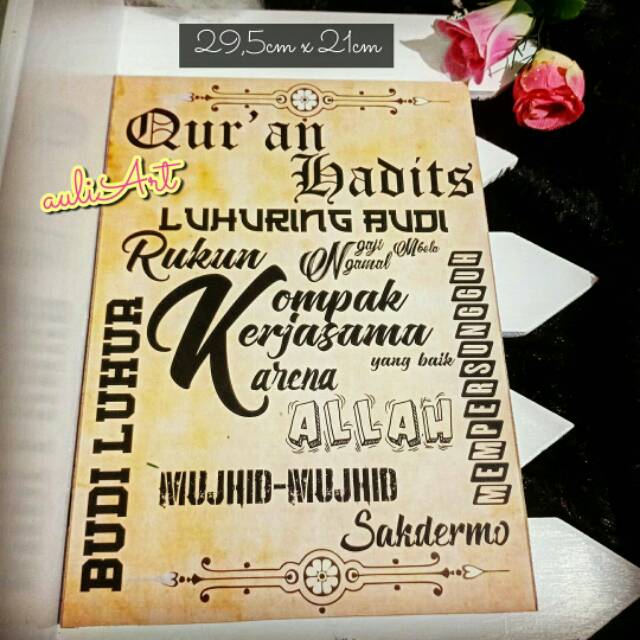 29,5cm x 21cm
auliArt
Qur'an
Hadits
LUHURING BUDI
Rukun
Ngaji
Ngamal
Mbela
Kompak
Kerjasama
yang baik
Karena
ALLAH
MUJHID-MUJHID
Sakdermo
BUDI LUHUR
MEMPERSUNGGUH